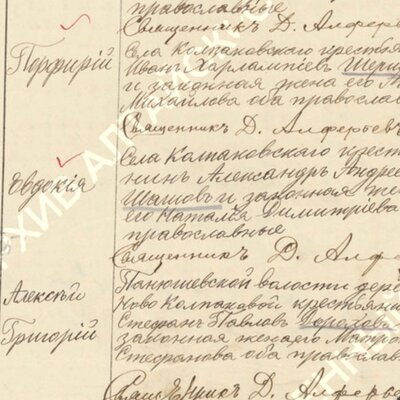 православные
Священникъ Д. Алферье
Порфирій
Села Колпаковскаго крестья
Иванъ Харлампіевъ
и законная жена его
Михайлова оба православ
Священникъ Д. Алферьевъ
Евдокія
Села Колпаковскаго крест
нинъ Александръ Андрее
Шашовъ и законная же
его Наталія Димитріева
православные
Священникъ Д. Алфер
Панюшевской волости дер
Алексѣй
Ново Колпаковой крестьянинъ
Григорій
Стефанъ Павловъ
законная жена его Матро
Стефанова оба православ
Священникъ Д. Алферье